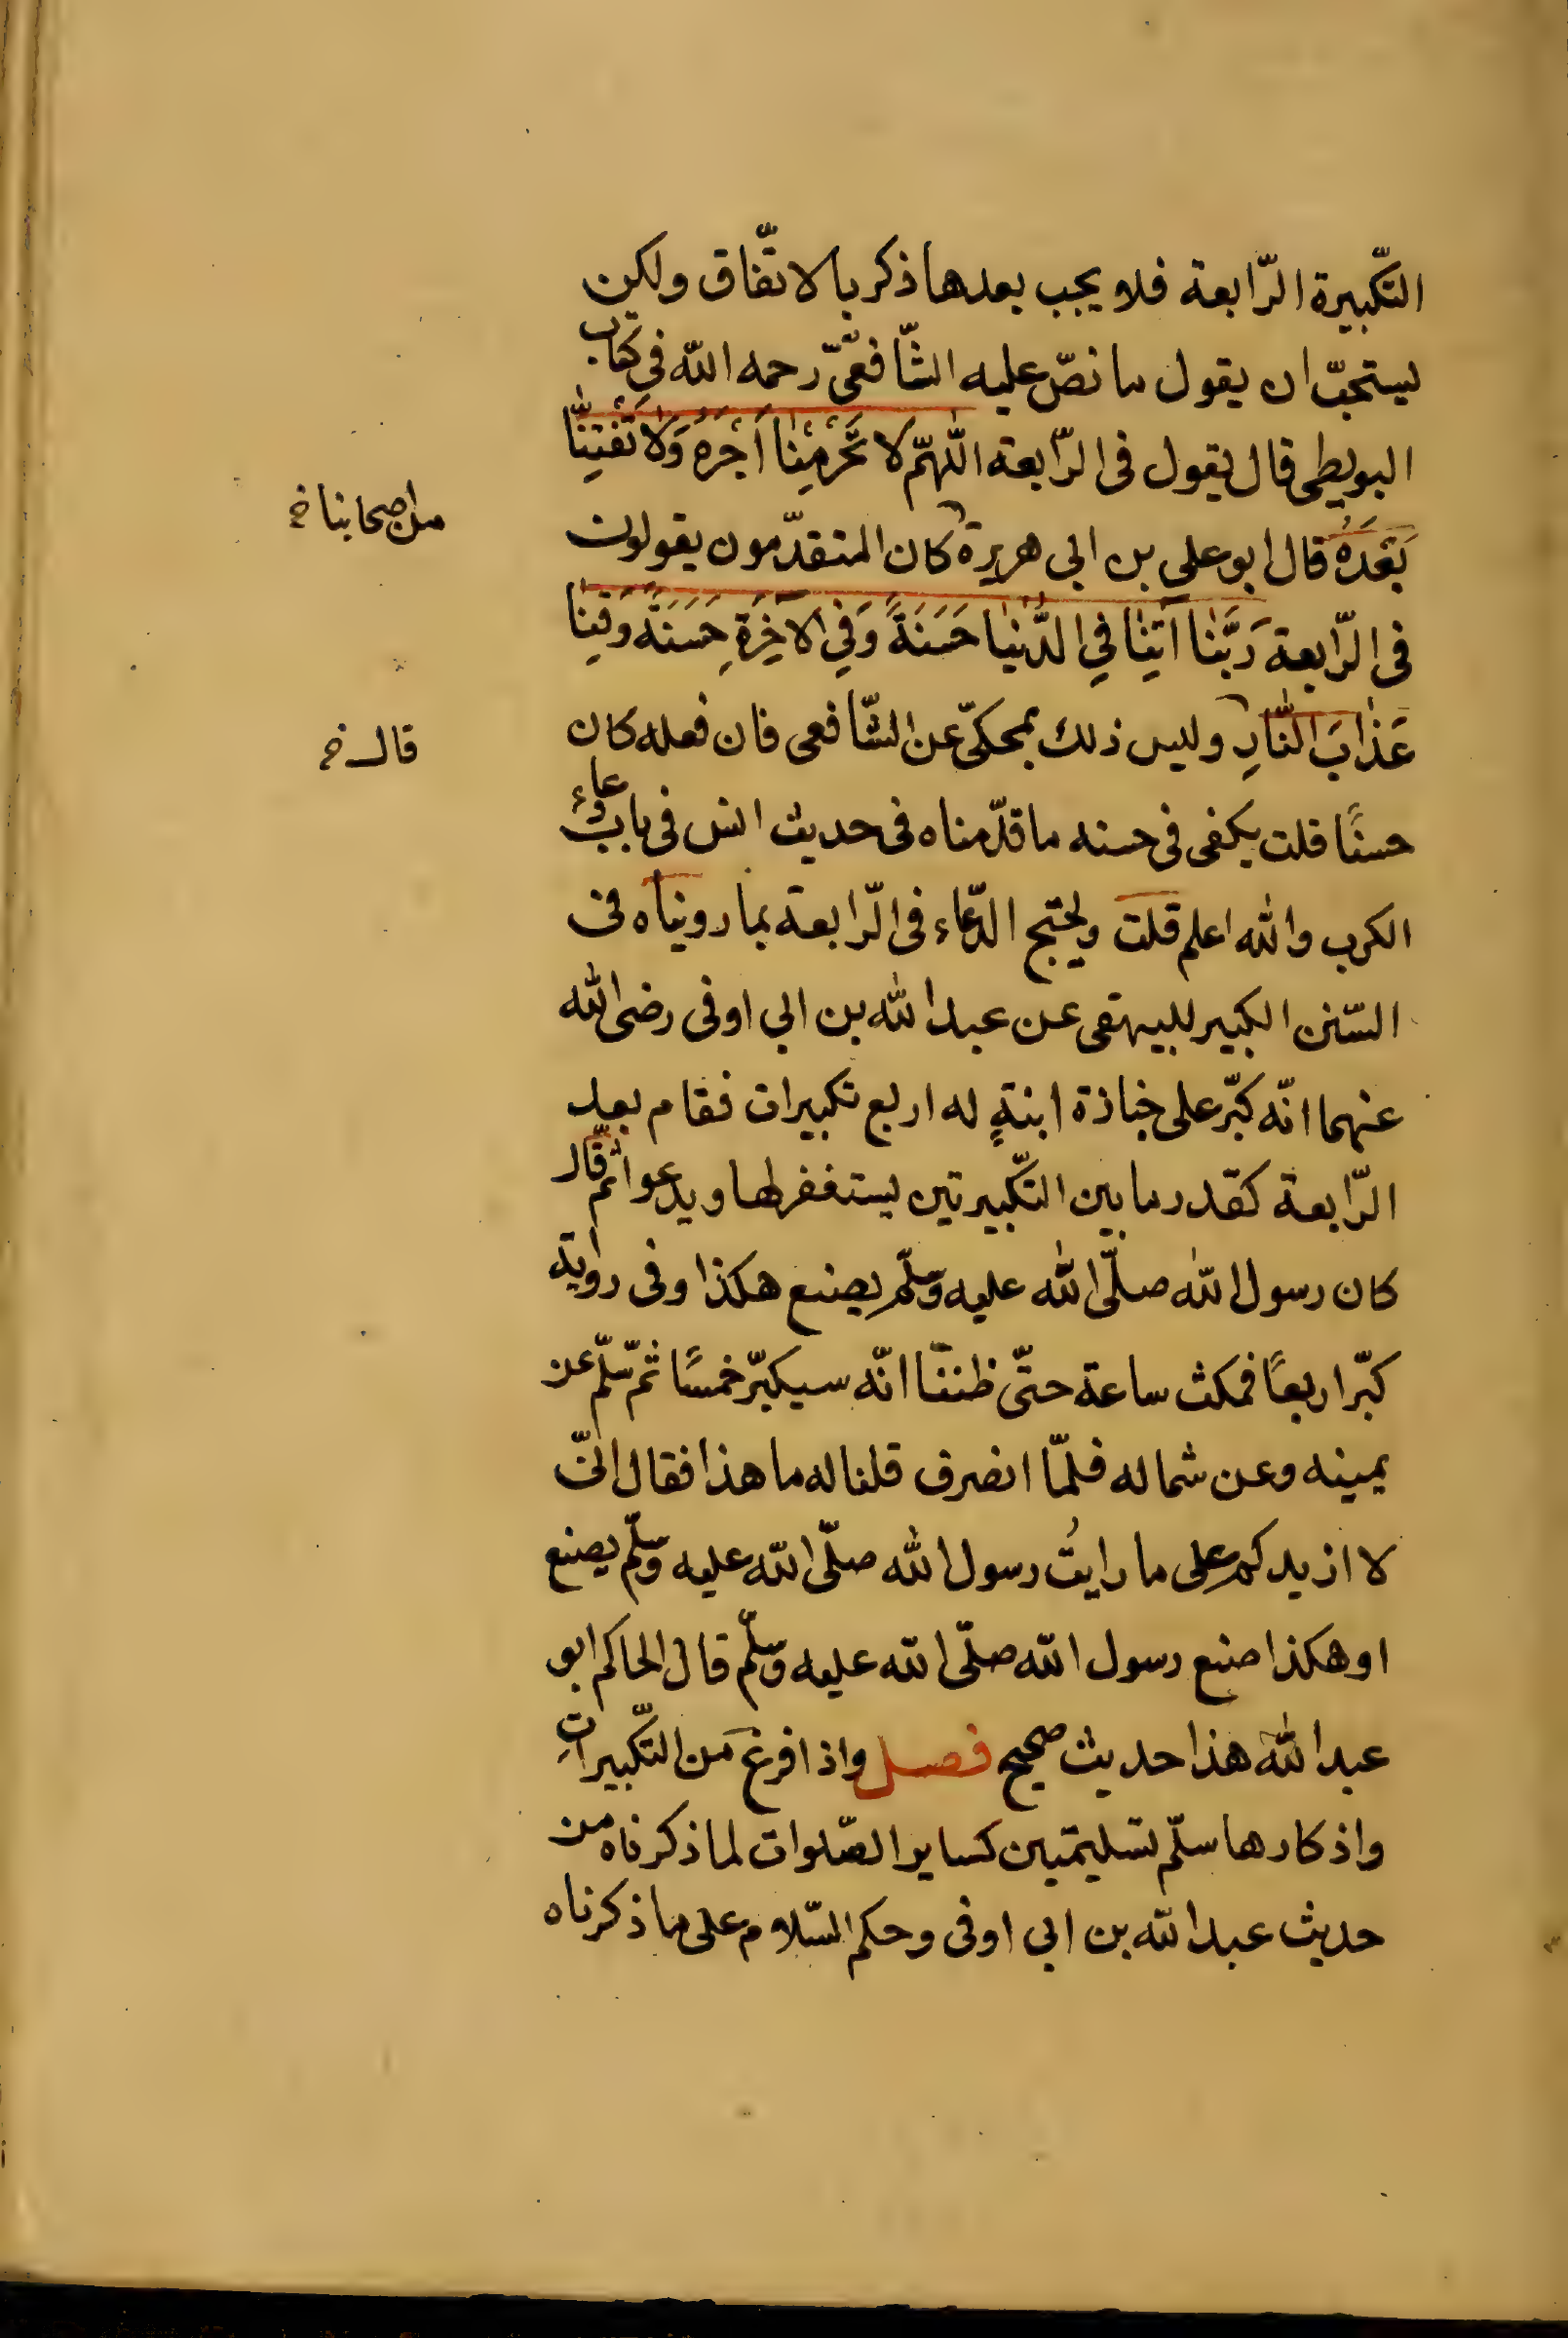 التّكبيرة الرّابعة فلا يجب بعدها ذكر بالاتّفاق ولكن
يستحبّ ان يقول ما نصّ عليه الشّافعيّ رحمه الله فى كتاب
البويطى قال يقول فى الرّابعة اللّهمّ لَا تَحْرِمْنَا اَجْرَهُ وَلَا تَفْتِنَّا
بَعْدَهُ قال ابو على بن ابى هريرة كان المتقدّمون يقولون
من اصحابنا خ
فى الرّابعة رَبَّنَا آتِنَا فِي الدُّنْيَا حَسَنَةً وَفِي الْآخِرَةِ حَسَنَةً وَقِنَا
عَذَابَ النَّارِ وليس ذلك بمحكىّ عن الشّافعى فان فعله كان
قال خ
حسنًا قلت يكفى فى حسنه ما قدّمناه فى حديث انس فى باب دعاء
الكرب والله اعلم قلت ويحتج الدّعاء فى الرّابعة بما رويناه فى
السّنن الكبير للبيهقى عن عبد الله بن ابى اوفى رضى الله
عنهما انّه كبّر على جنازة ابنةٍ له اربع تكبيرات فقام بعد
الرّابعة كقدر ما بين التّكبيرتين يستغفر لها ويدعوا ثمّ قال
كان رسول الله صلّى الله عليه وسلّم يصنع هكذا وفى رواية
كبّر اربعًا فمكث ساعة حتّى ظننّا انّه سيكبّر خمسًا ثمّ سلّم عن
يمينه وعن شماله فلمّا انصرف قلنا له ما هذا فقال انّى
لا ازيدكم على ما رايتُ رسول الله صلّى الله عليه وسلّم يصنع
او هكذا صنع رسول الله صلّى الله عليه وسلّم قال الحاكم ابو
عبد الله هذا حديث صحيح فصل واذا فرغ من التّكبيراتِ
واذكارها سلّم تسليمتين كساير الصّلوات لما ذكرناه من
حديث عبد الله بن ابى اوفى وحكم السّلام على ما ذكرناه